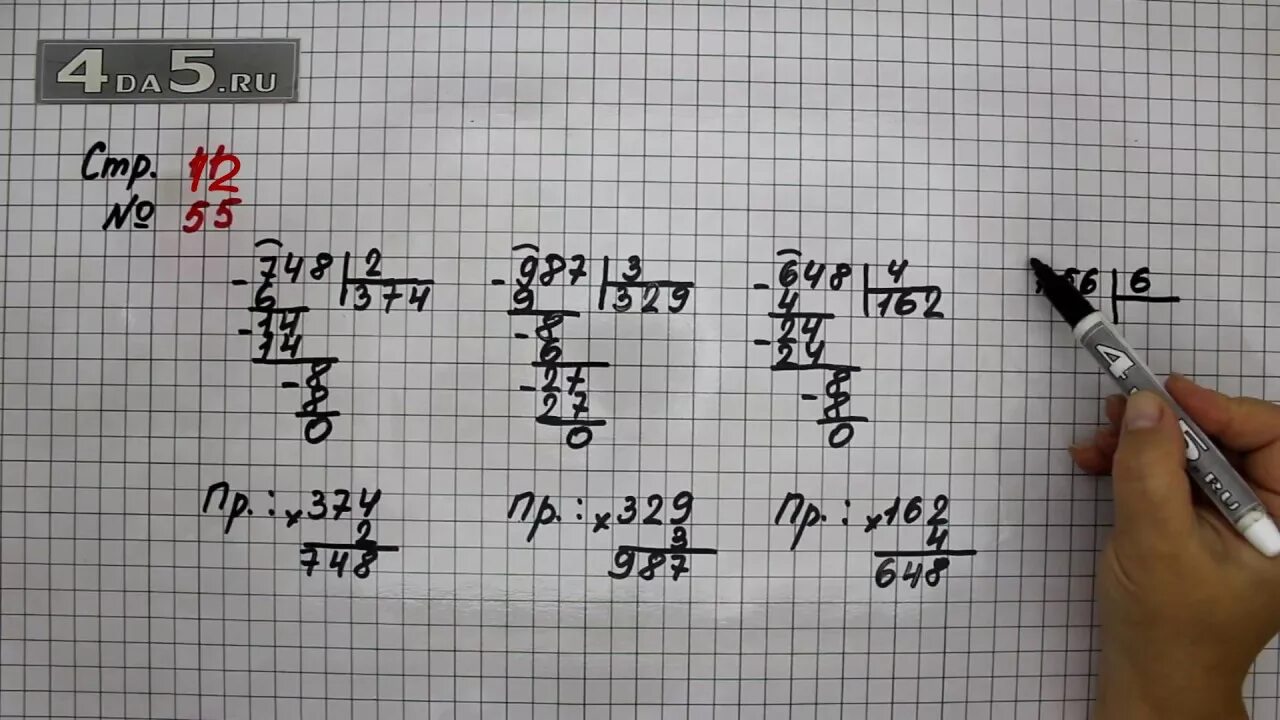 4DA5.RU
Стр. 12
№ 55
748 | 2
- 6 | 374
14
- 14
8
- 8
0
987 | 3
- 9 | 329
8
- 6
27
- 27
0
648 | 4
- 4 | 162
24
- 24
8
- 8
0
56 | 6
Пр.: × 374
2
748
Пр.: × 329
3
987
Пр.: × 162
4
648